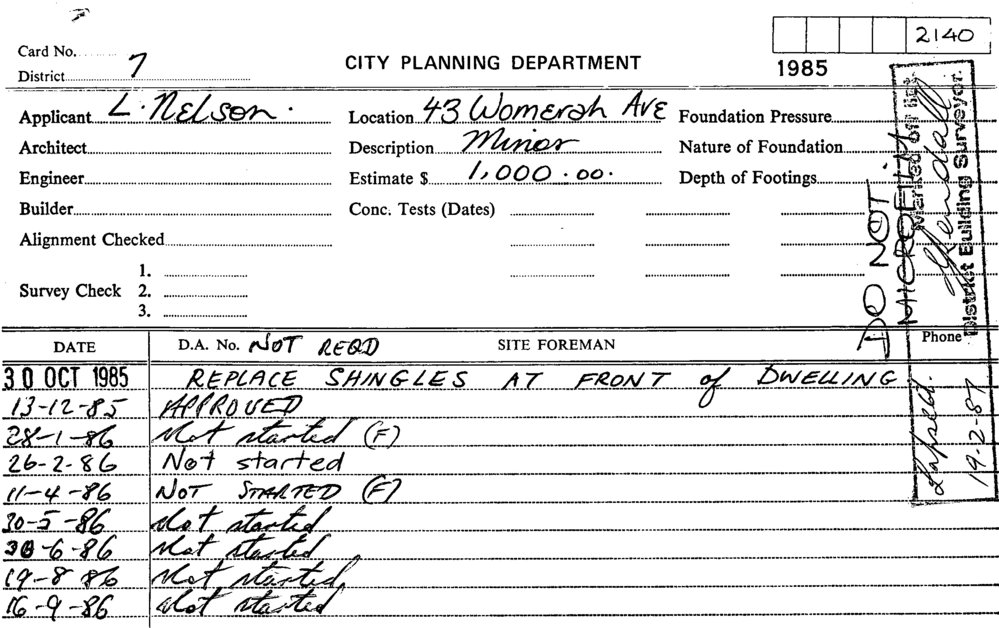 2140
Card No.
CITY PLANNING DEPARTMENT
1985
District 7
Applicant L. Nelson. Location 43 Womerah Ave Foundation Pressure
Architect Description Minor Nature of Foundation
Engineer Estimate $ 1,000.00. Depth of Footings
Builder Conc. Tests (Dates)
Alignment Checked
1.
Survey Check 2.
3.
DO NOT
MICROFILM
Marked off list
District Building Surveyor.
Lapsed.
19-2-87
DATE D.A. No. NOT REQD SITE FOREMAN Phone
30 OCT 1985 REPLACE SHINGLES AT FRONT of DWELLING
13-12-85 APPROVED
28-1-86 Not started (F)
26-2-86 Not started
11-4-86 NOT STARTED (F)
30-5-86 Not started
30-6-86 Not started
19-8-86 Not started
16-9-86 Not started